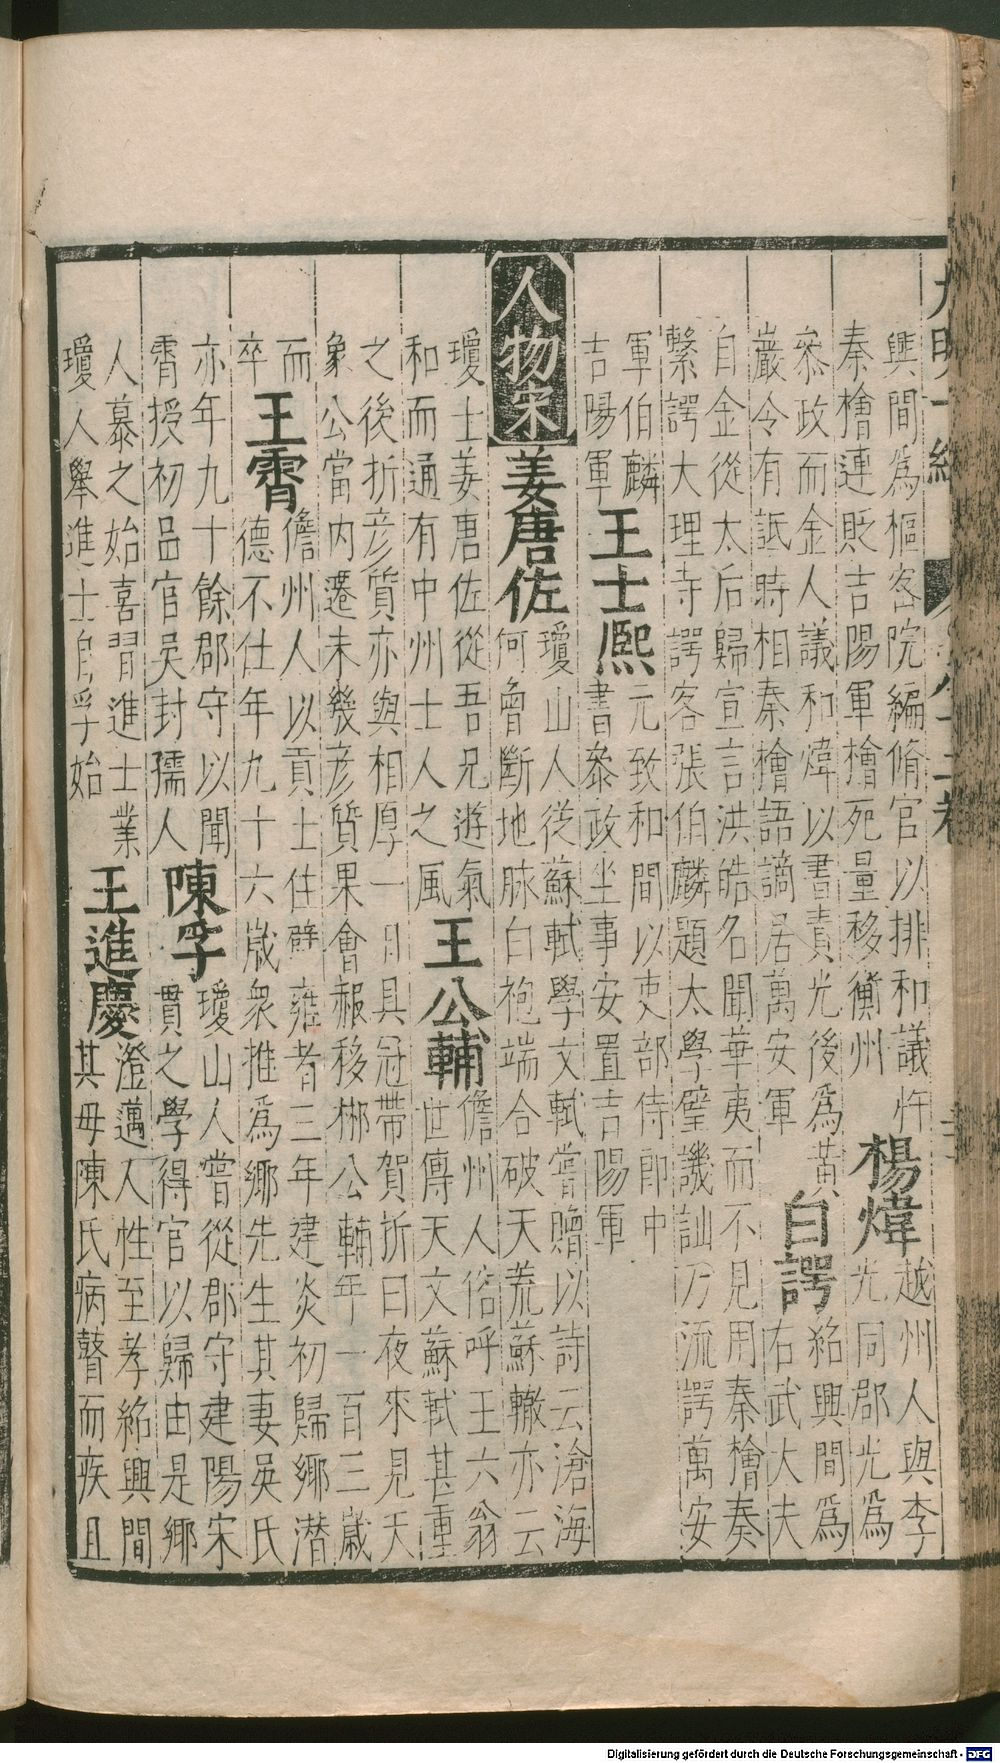 興間為樞密院編脩官以排和議忤
秦檜連貶吉陽軍檜死量移衡州
楊煒
越州人與李
光同郡光為
叅政而金人議和煒以書責光後為黃
嚴令有詆時相秦檜語謫居萬安軍
白諤
紹興間為
右武大夫
自金從太后歸宣言洪皓名聞華夷而不見用秦檜奏
繫諤大理寺諤客張伯麟題太學壁譏訕乃流諤萬安
軍伯麟
吉陽軍
王士熈
元致和間以吏部侍郎中
書叅政坐事安置吉陽軍
人物宋
姜唐佐
瓊山人從蘇軾學文軾嘗贈以詩云滄海
何曾斷地脉白袍端合破天荒蘇轍亦云
瓊士姜唐佐從吾兄遊氣
和而通有中州士人之風
王公輔
儋州人俗呼王六翁
世傳天文蘇軾甚重
之後折彦質亦與相厚一日具冠帶賀折曰夜來見天
象公當内遷未幾彦質果會赧移郴公輔年一百三歲
而
卒
王霄
儋州人以貢士住辟雍者三年建炎初歸鄉潜
德不仕年九十六歲衆推為鄉先生其妻吳氏
亦年九十餘郡守以聞
霄授初品官吳封孺人
陳孚
瓊山人嘗從郡守建陽宋
貫之學得官以歸由是鄉
人慕之始喜習進士業
瓊人舉進士自孚始
王進慶
澄邁人性至孝紹興間
其母陳氏病瞽而疾且
Digitalisierung gefördert durch die Deutsche Forschungsgemeinschaft - DFG